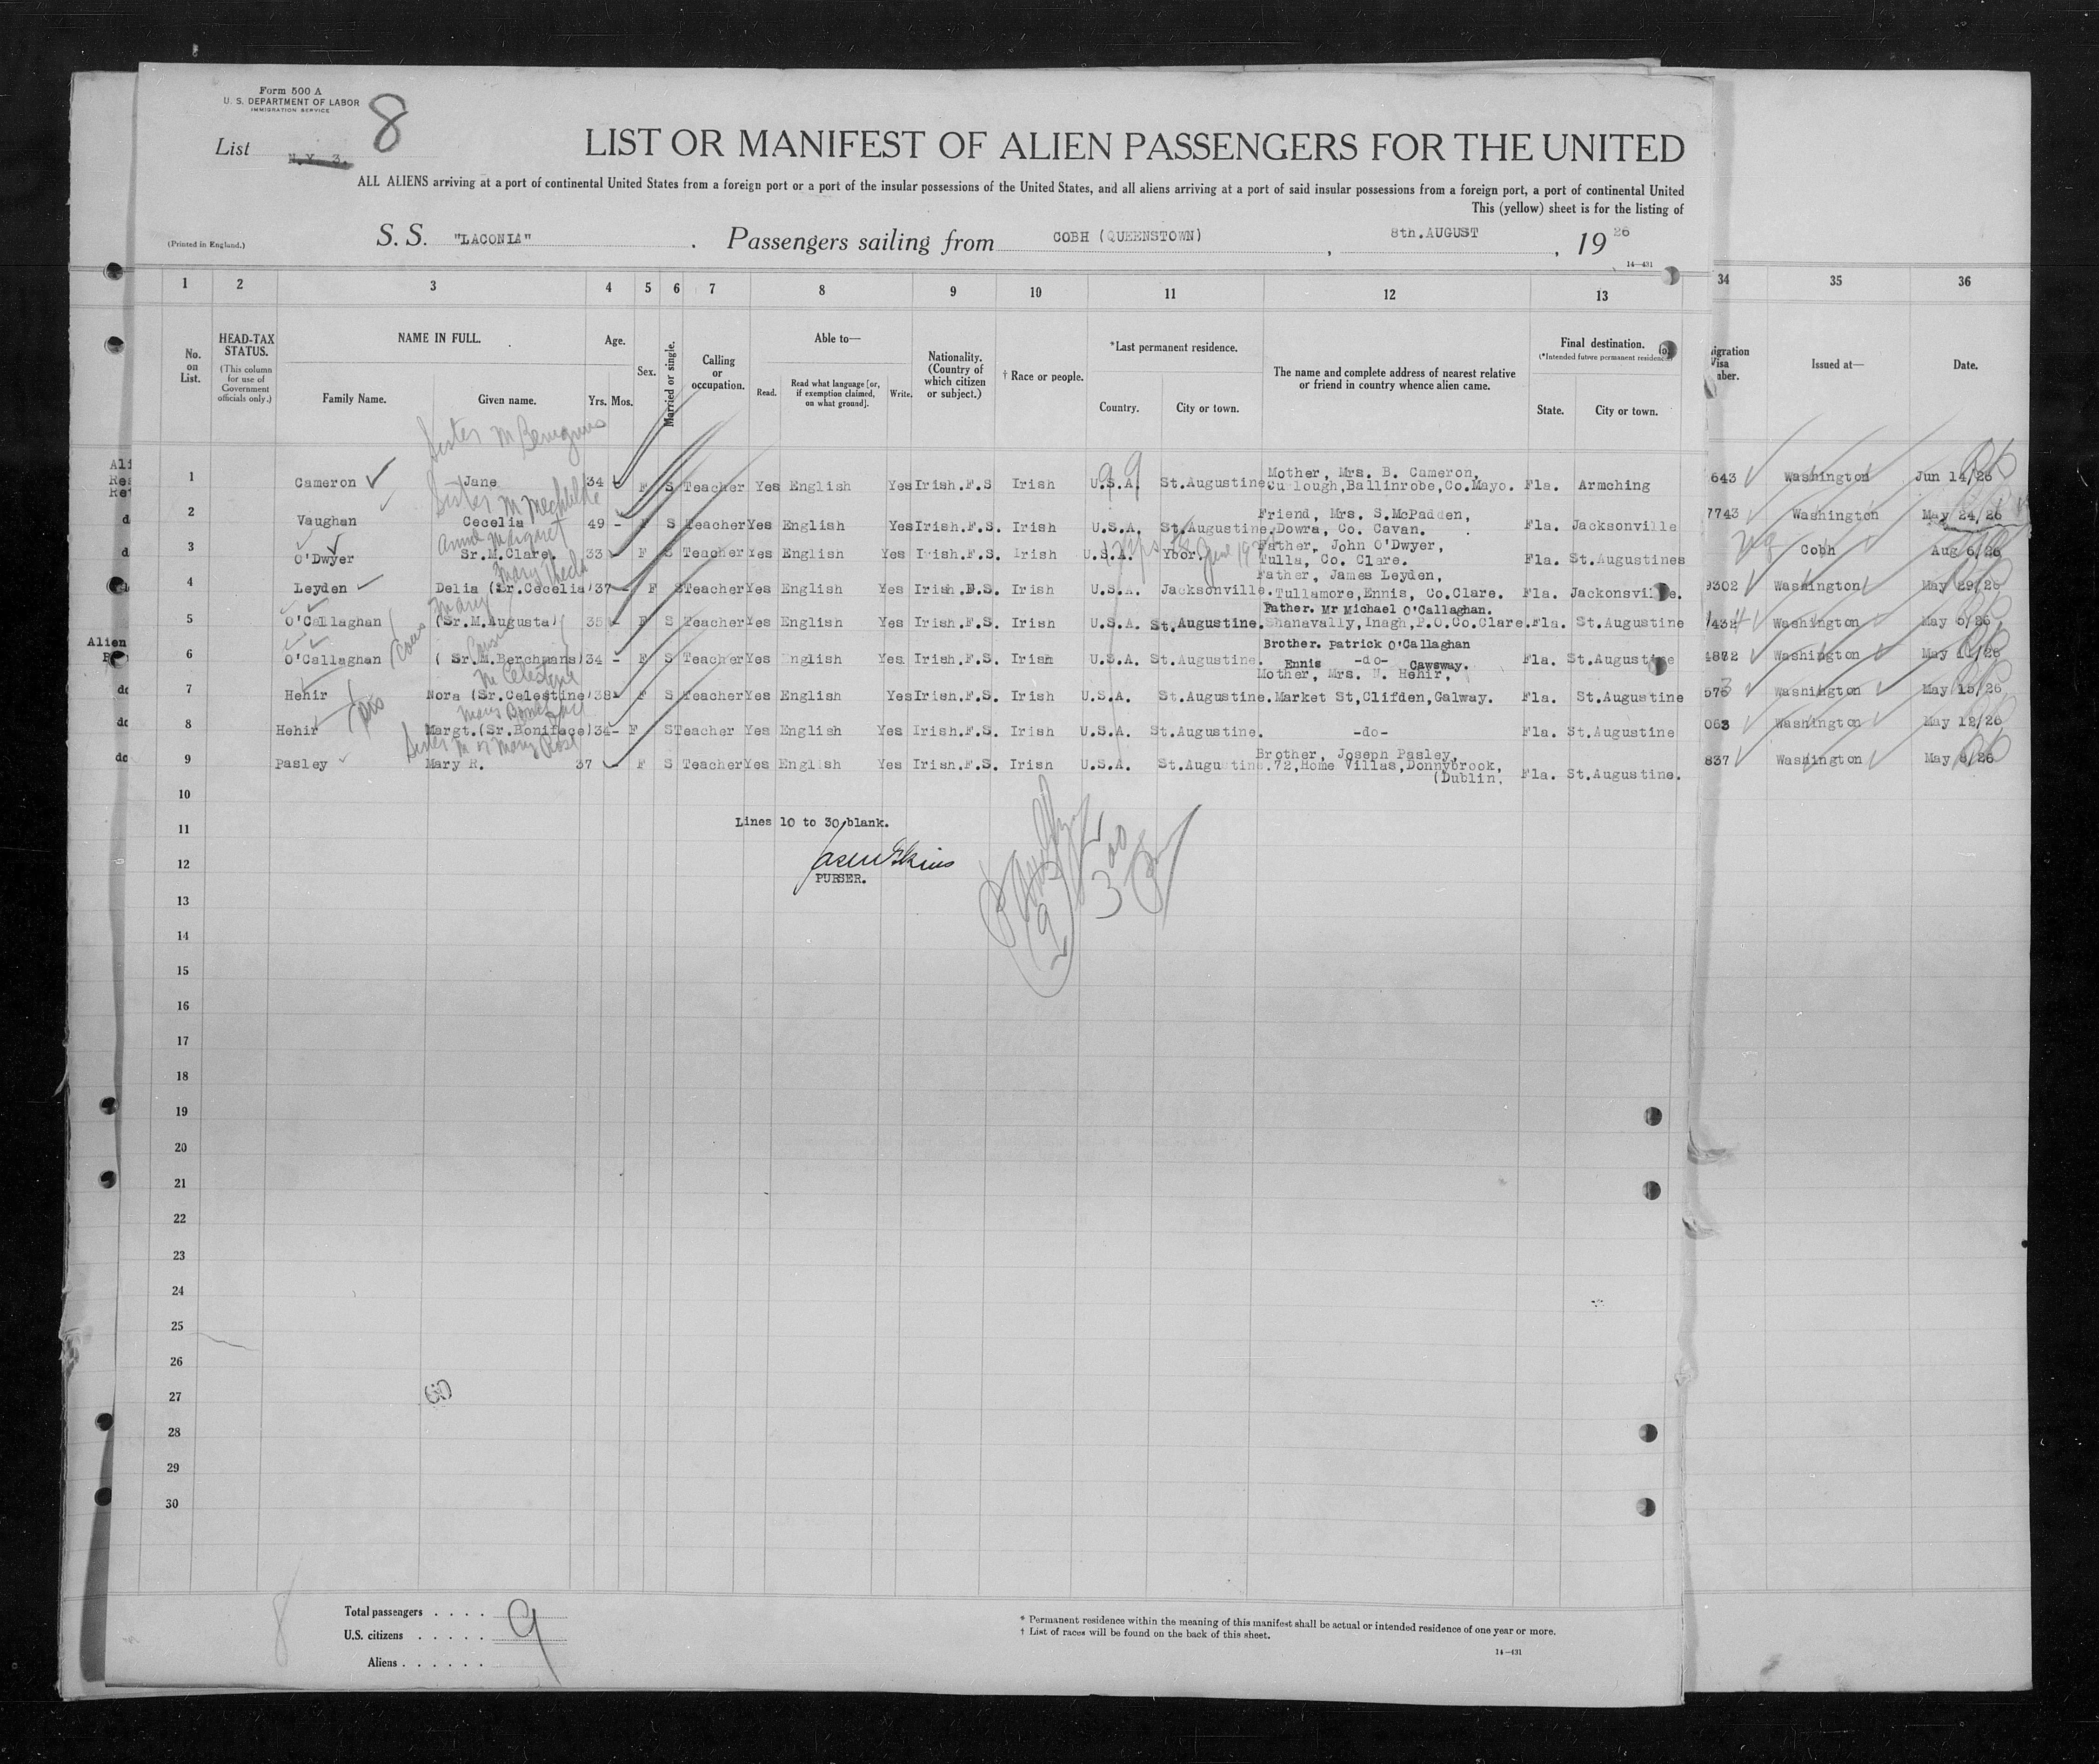 Form 500 A
U. S. DEPARTMENT OF LABOR
IMMIGRATION SERVICE
8
List N.Y. 3.
LIST OR MANIFEST OF ALIEN PASSENGERS FOR THE UNITED
ALL ALIENS arriving at a port of continental United States from a foreign port or a port of the insular possessions of the United States, and all aliens arriving at a port of said insular possessions from a foreign port, a port of continental United
This (yellow) sheet is for the listing of
(Printed in England.)
S. S. "LACONIA" . Passengers sailing from COBH (QUEENSTOWN) , 8th.AUGUST , 19 26
14—431
1 2 3 4 5 6 7 8 9 10 11 12 13 34 35 36
No. on List.
HEAD-TAX STATUS.
(This column for use of Government officials only.)
NAME IN FULL.
Family Name. Given name.
Age.
Yrs. Mos.
Sex.
Married or single.
Calling or occupation.
Able to—
Read. Read what language [or, if exemption claimed, on what ground]. Write.
Nationality. (Country of which citizen or subject.)
† Race or people.
*Last permanent residence.
Country. City or town.
The name and complete address of nearest relative or friend in country whence alien came.
Final destination.
(*Intended future permanent residence.)
State. City or town.
Issued at—
Date.
Sister M Benignus
1 Cameron Jane 34 F S Teacher Yes English Yes Irish.F.S Irish U.S.A. St.Augustine Mother, Mrs. B. Cameron, Fla. Armching 643 Washington Jun 14/26
Cu lough,Ballinrobe,Co.Mayo.
99
Sister M Mechtilde
2 Vaughan Cecelia 49 - F S Teacher Yes English Yes Irish.F.S. Irish U.S.A. St.Augustine. Friend, Mrs. S.McPadden, Fla. Jacksonville 7743 Washington May 24/26
Dowra, Co. Cavan.
Anne Margaret
3 O'Dwyer Sr.M.Clare. 33 F S Teacher Yes English Yes Irish.F.S. Irish U.S.A. Ybor. Father, John O'Dwyer, Fla. St.Augustines Cobh Aug 6/26
Tulla, Co. Clare.
Mary Thecla
4 Leyden Delia (Sr.Cecelia) 37 - F S Teacher Yes English Yes Irish.F.S. Irish U.S.A. Jacksonville. Father, James Leyden, Fla. Jackonsville. 9302 Washington May 29/26
Tullamore,Ennis, Co.Clare.
Mary
5 O'Callaghan (Sr.M.Augusta) 35 F S Teacher Yes English Yes Irish.F.S. Irish U.S.A. St.Augustine. Father. Mr Michael O'Callaghan. Fla. St.Augustine 432 Washington May 6/26
Shanavally,Inagh,P.O.Co.Clare.
6 O'Callaghan ( Sr.M.Berchmans) 34 - F S Teacher Yes English Yes Irish.F.S. Irish U.S.A. St.Augustine. Brother. Patrick O'Callaghan Fla. St.Augustine 4872 Washington
Ennis -do- Cawsway.
M Celestine
7 Hehir Nora (Sr.Celestine) 38 F S Teacher Yes English Yes Irish.F.S. Irish U.S.A. St.Augustine. Mother, Mrs. M. Hehir, Fla. St.Augustine Washington May 15/26
Market St,Clifden,Galway.
Mary Boniface
8 Hehir Margt.(Sr.Boniface) 34- F S Teacher Yes English Yes Irish.F.S. Irish U.S.A. St.Augustine. -do- Fla. St.Augustine 063 Washington May 12/26
9 Pasley Mary R. 37 - F S Teacher Yes English Yes Irish.F.S. Irish U.S.A. St.Augustine. Brother, Joseph Pasley, Fla. St.Augustine. 837 Washington May 8/26
72,Home Villas,Donnybrook,
(Dublin,
10
11
Lines 10 to 30 blank.
12
PURSER.
13
14
15
16
17
18
19
20
21
22
23
24
25
26
27
28
29
30
8
Total passengers . . . . 9
U.S. citizens . . . . .
Aliens . . . . . .
* Permanent residence within the meaning of this manifest shall be actual or intended residence of one year or more.
† List of races will be found on the back of this sheet.
14—431